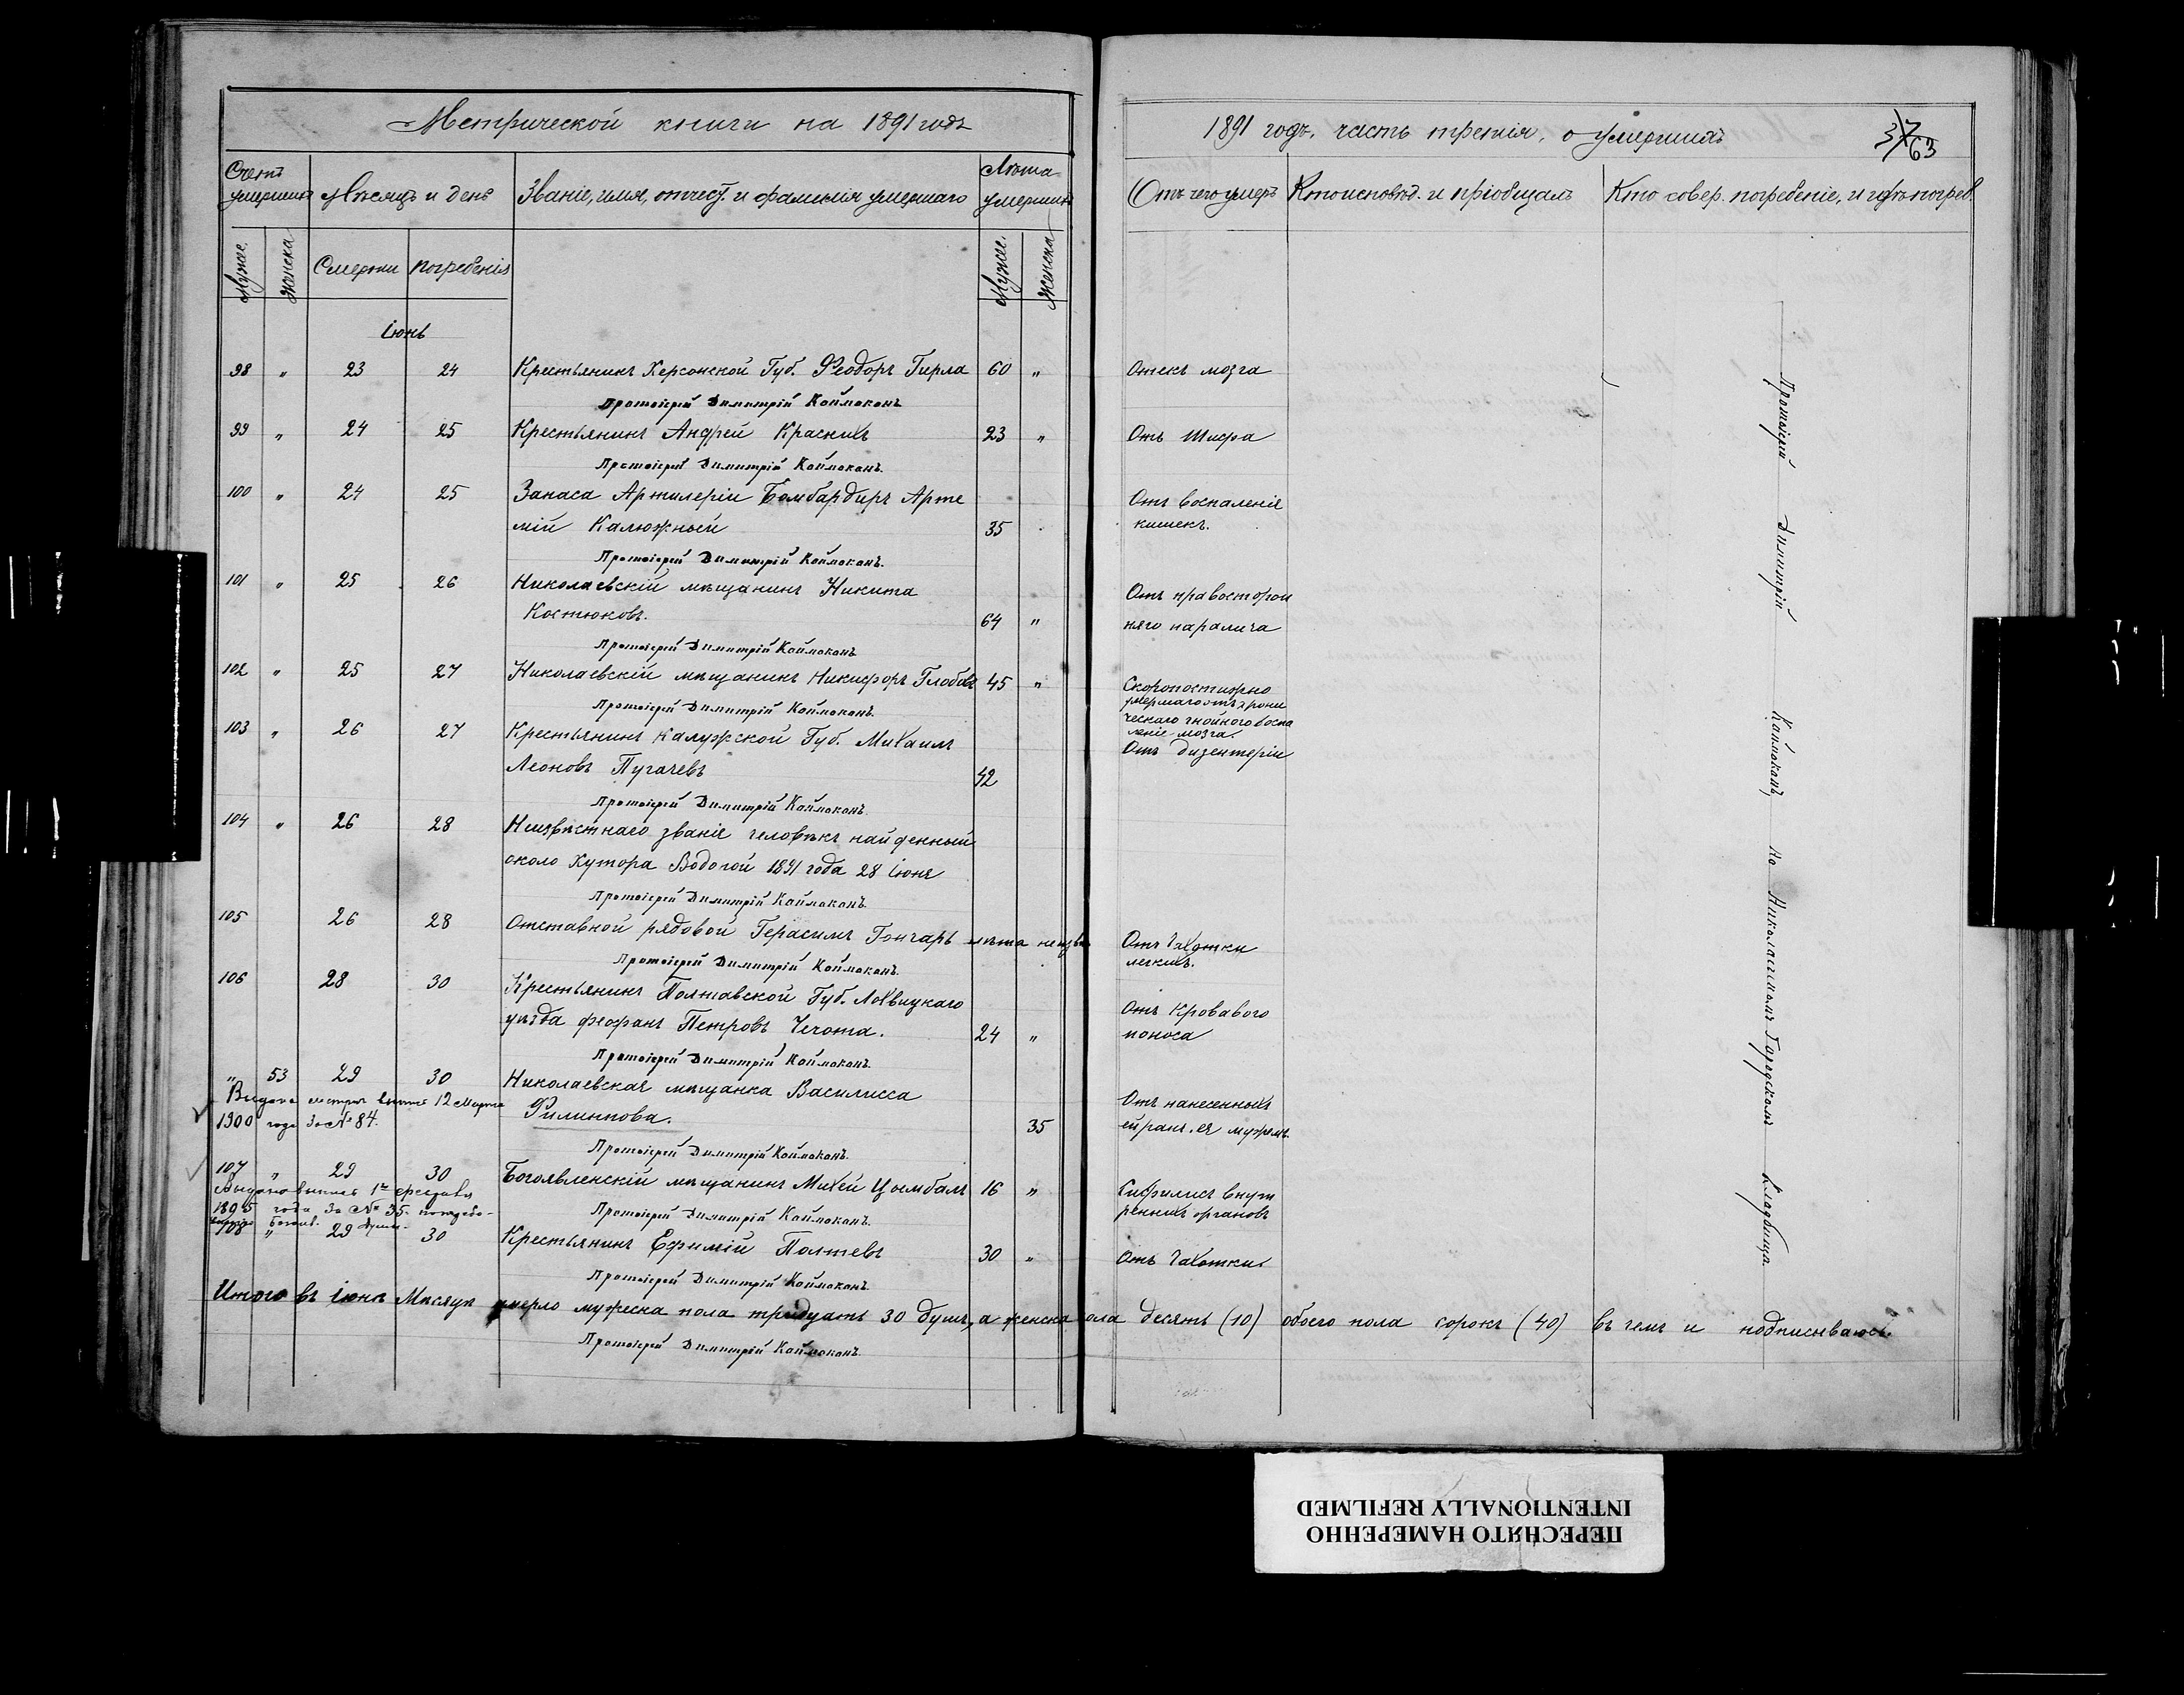 Метрической книги на 1891 годъ
Счетъ умершихъ
Мѣсяцъ и день
Званіе, имя, отчест. и фамилія умершаго
Лѣта умершихъ
Муже.
Женска
Смерти
Погребенія
Муже.
Женска
Іюнь
98 " 23 24 Крестьянинъ Херсонской Губ. Ѳеодоръ Гирла 60 "
Протоіерей Димитрій Каймаканъ
99 " 24 25 Крестьянинъ Андрей Красныхъ 23 "
Протоіерей Димитрій Каймаканъ.
100 " 24 25 Запаса Артилеріи Бомбардиръ Арте
мій Калюжный 35
Протоіерей Димитрій Каймаканъ.
101 " 25 26 Николаевскій мѣщанинъ Никита
Костюковъ. 64 "
Протоіерей Димитрій Каймаканъ
102 " 25 27 Николаевскій мѣщанинъ Никифоръ Глобовъ 45 "
Протоіерей Димитрій Каймаканъ.
103 " 26 27 Крестьянинъ Калужской Губ. Михаилъ
Леоновъ Пугачевъ 42
Протоіерей Димитрій Каймаканъ.
104 " 26 28 Неизвѣстнаго званія человѣкъ найденный
около хутора Водопой 1891 года 28 Іюня
Протоіерей Димитрій Каймаканъ.
105 26 28 Отставной рядовой Герасимъ Гончаръ лѣта неизвѣ
Протоіерей Димитрій Каймаканъ.
106 28 30 Крестьянинъ Полтавской Губ. Лохвицкаго
уѣзда Феофанъ Петровъ Чехота. 24 "
Протоіерей Димитрій Каймаканъ.
" 53 29 30 Николаевская мѣщанка Василисса
Выдана метрич выпись 12 Марта
1900 года за № 84.
Филиппова. 35
Протоіерей Димитрій Каймаканъ.
107 " 29 30 Богоявленскій мѣщанинъ Михей Цымбалъ 16 "
Выдана выпись 1го февраля
1895 года за № 35.
Протоіерей Димитрій Каймаканъ.
108 " 29 30 Крестьянинъ Ефимій Полтевъ 30 "
Протоіерей Димитрій Каймаканъ.
Итого въ Іюнѣ Мѣсяцѣ умерло мужеска пола тридцать 30 душъ, а женска пола десять (10) обоего пола сорокъ (40) въ чемъ и подписываюсь.
Протоіерей Димитрій Каймаканъ.
1891 годъ, часть третія, о умершихъ
37
63
Отъ чего умеръ
Кто исповѣд. и пріобщалъ
Кто совер. погребеніе, и гдѣ погреб.
Отекъ мозга
Отъ Тифа
Отъ воспаленія
кишекъ.
Отъ правосторон
няго паралича
Скоропостижно
умершаго отъ хрони
ческаго гнойнаго воспа
ленія мозга.
Отъ дизентеріи
Отъ чахотки
легкихъ.
Отъ Кроваваго
поноса
Отъ нанесенныхъ
ей ранъ ея мужемъ.
Сифилисъ внут
реннихъ органовъ
Отъ чахотки
Протоіерей Димитрій Каймаканъ, на Николаевскомъ Городскомъ Кладбищѣ
ПЕРЕСНЯТО НАМЕРЕННО
INTENTIONALLY REFILMED